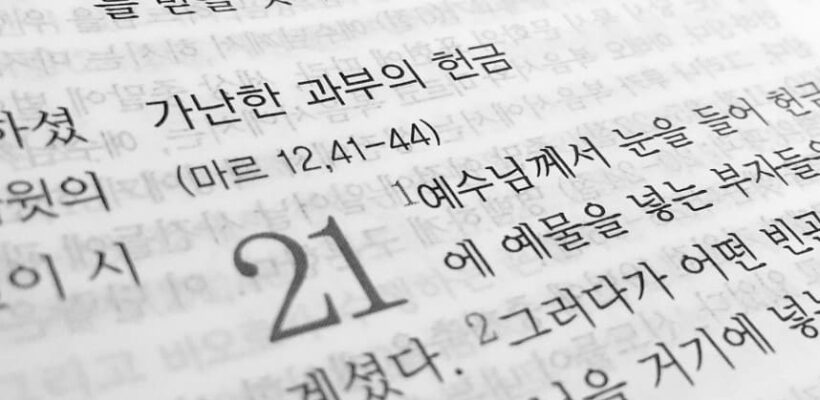 가난한 과부의 헌금
하셨
(마르 12,41-44)
윗의
21
1예수님께서 눈을 들어 헌금
이 시
에 예물을 넣는 부자들을
계셨다. 2그러다가 어떤 빈곤
거기에 넣는